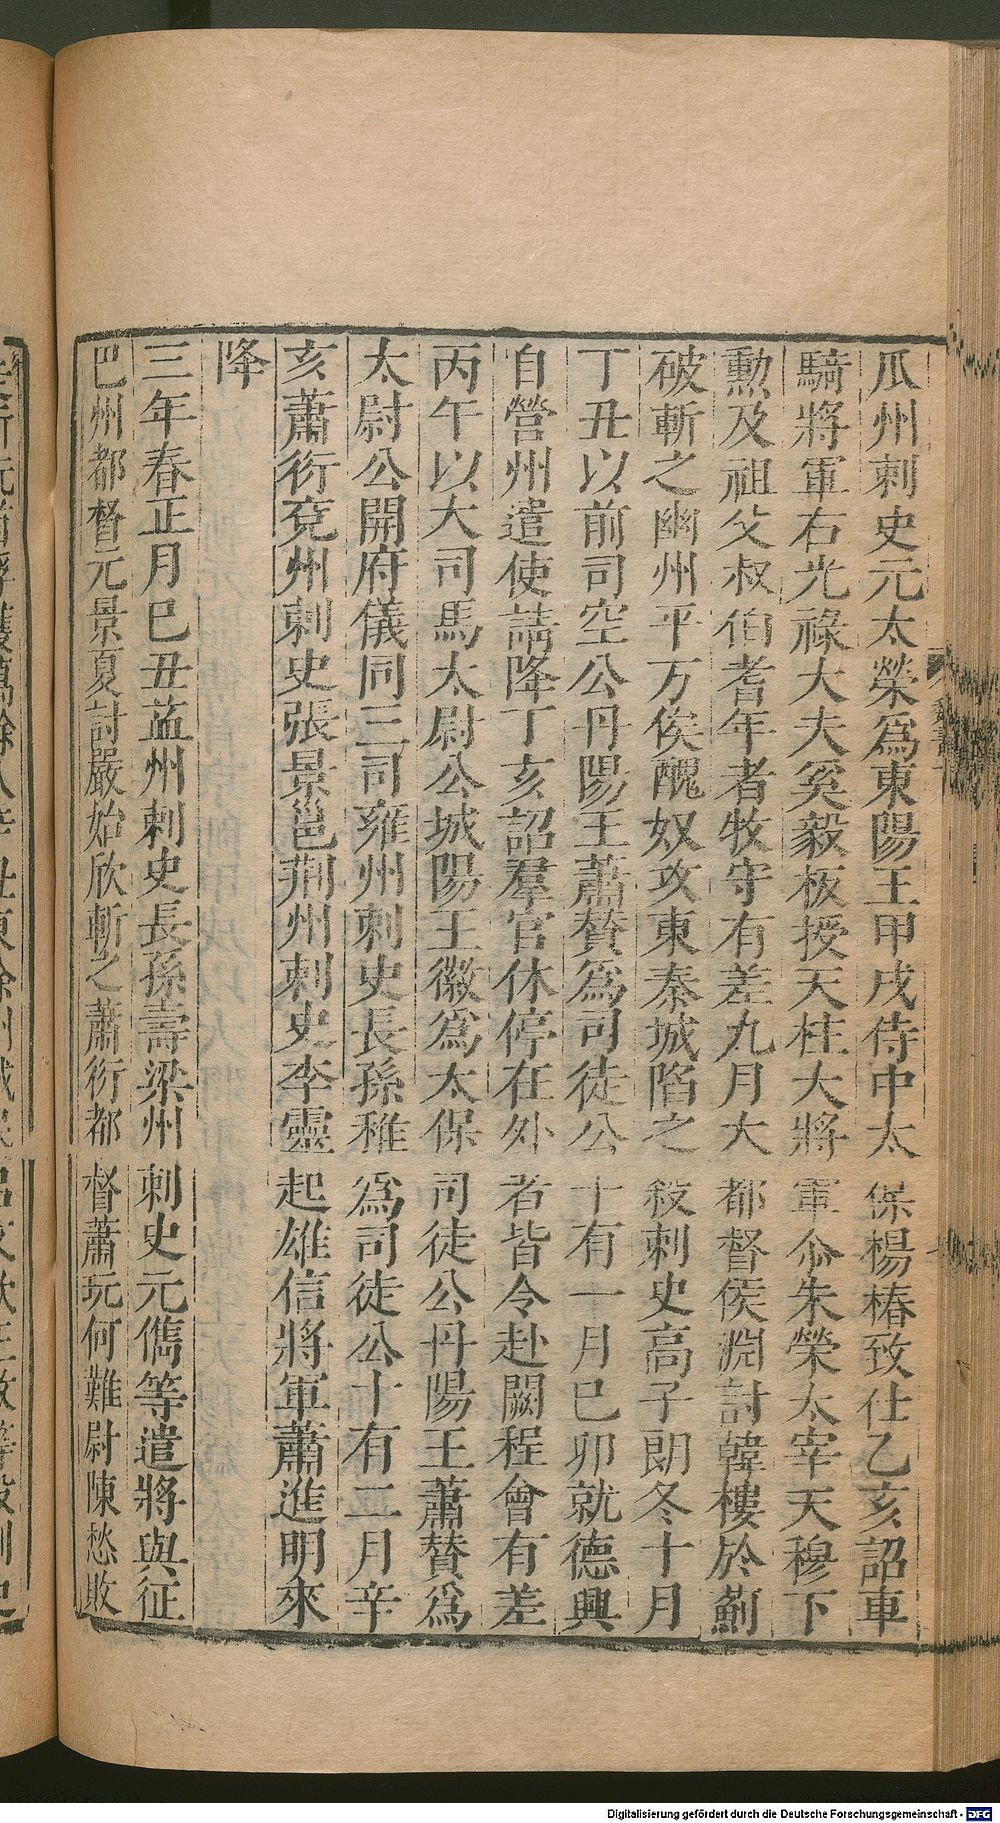 瓜州刺史元太榮爲東陽王甲戌侍中太保楊椿致仕乙亥詔車
騎將軍右光祿大夫奚毅板授天柱大將軍尒朱榮太宰天穆下
勲及祖父叔伯耆年者牧守有差九月大都督侯淵討韓樓於薊
破斬之幽州平万俟醜奴攻東秦城陷之殺刺史高子朗冬十月
丁丑以前司空公丹陽王蕭賛爲司徒公十有一月己卯就德興
自營州遣使請降丁亥詔羣官休停在外者皆令赴闕程會有差
丙午以大司馬太尉公城陽王徽爲太保司徒公丹陽王蕭賛爲
太尉公開府儀同三司雍州刺史長孫稚爲司徒公十有二月辛
亥蕭衍兗州刺史張景邕荆州刺史李靈起雄信將軍蕭進明來
降
三年春正月己丑益州刺史長孫壽梁州刺史元儁等遣將與征
巴州都督元景夏討嚴始欣斬之蕭衍都督蕭玩何難尉陳愁敗
Digitalisierung gefördert durch die Deutsche Forschungsgemeinschaft - DFG